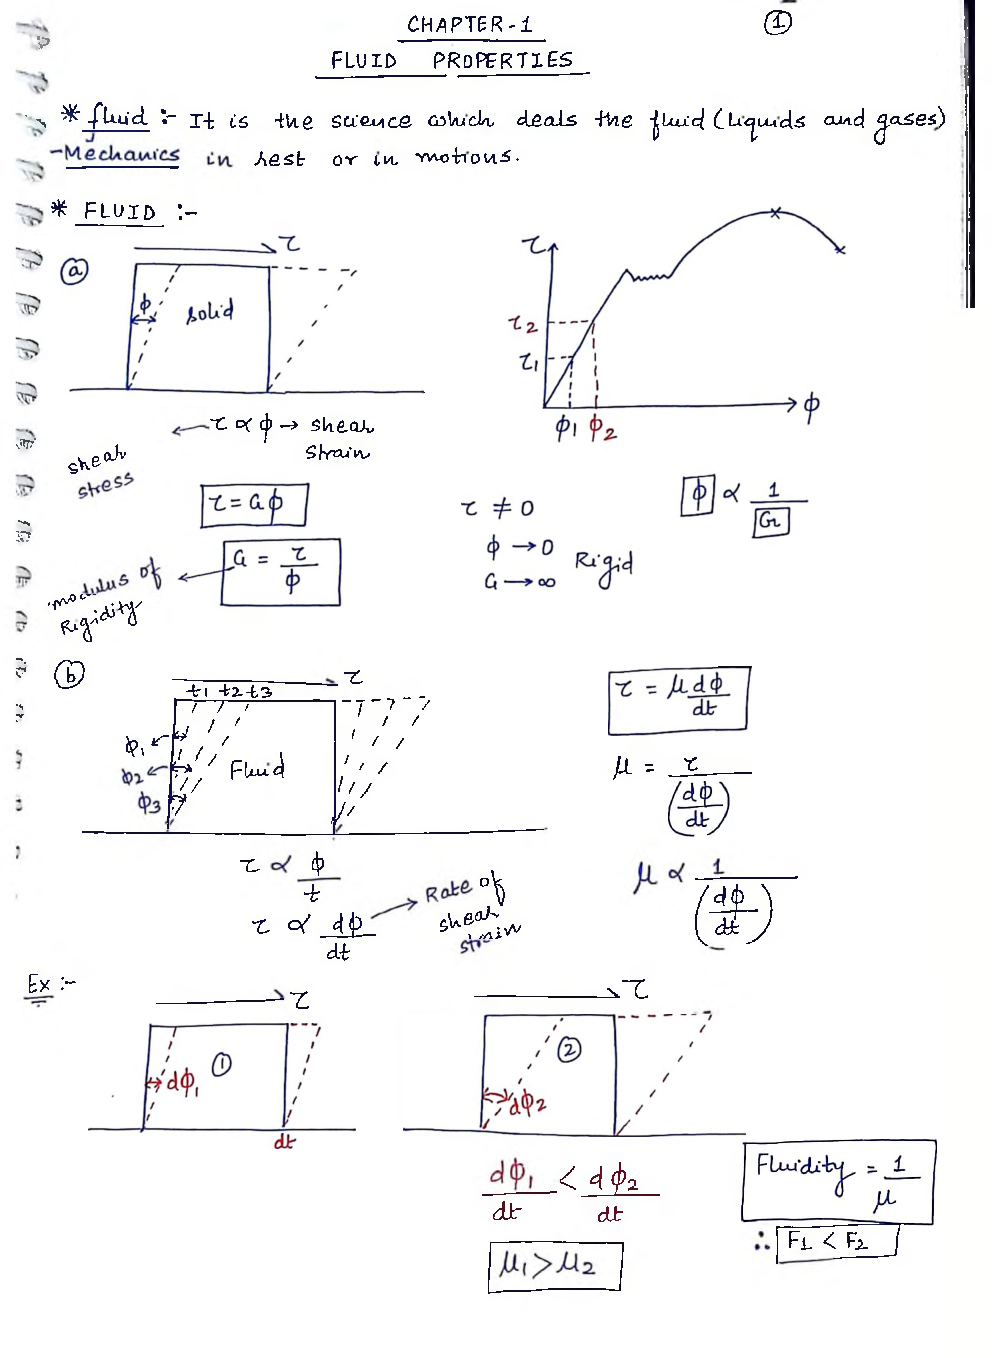 CHAPTER-1
①
FLUID PROPERTIES
* fluid :- It is the science which deals the fluid (liquids and gases)
-Mechanics in rest or in motions.
* FLUID :-
ⓐ
τ
ϕ
solid
τ ∝ ϕ → shear
strain
shear
stress
τ
τ2
τ1
ϕ1 ϕ2
ϕ
τ = Gϕ
G = τ/ϕ
modulus of
Rigidity
τ ≠ 0
ϕ → 0
G → ∞
Rigid
ϕ ∝ 1/G
ⓑ
τ
t1 t2 t3
ϕ1
ϕ2
ϕ3
Fluid
τ ∝ ϕ/t
τ ∝ dϕ/dt → Rate of
shear
strain
τ = μ dϕ/dt
μ = τ/(dϕ/dt)
μ ∝ 1/(dϕ/dt)
Ex :-
τ
①
dϕ1
dt
τ
②
dϕ2
dϕ1/dt < dϕ2/dt
μ1 > μ2
Fluidity = 1/μ
∴ F1 < F2